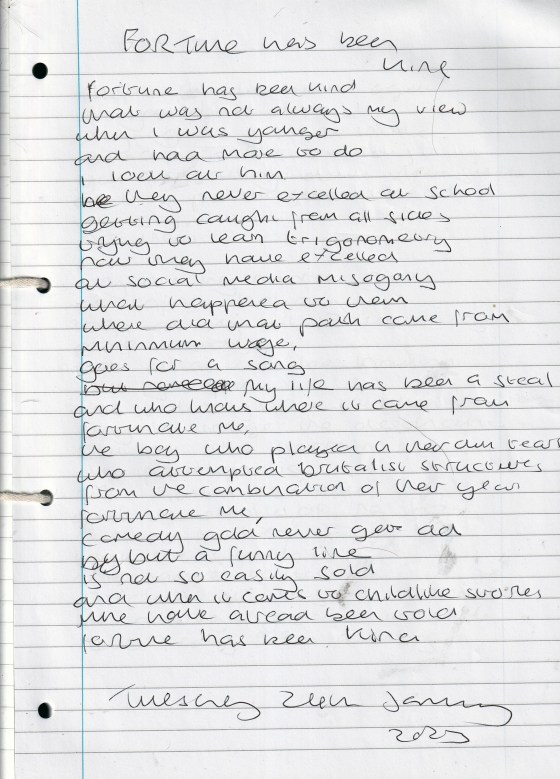 Fortune has been
kind
fortune has been kind
that was not always my view
when I was younger
and had more to do
I look at him
they never excelled at school
getting caught from all sides
trying to learn trigonometry
now they have excelled
at social media misogany
what happened to them
where did that path come from
minimum wage,
goes for a song
my life has been a steal
and who knows where it came from
fortunate me,
the boy who played in
who attempted brutalist structures
from the combination of their year
fortunate me,
comedy gold never gets old
by but a funny line
is not so easily sold
and when it comes to childlike stories
mine have alread been told
fortune has been kind
Tuesday January
2025